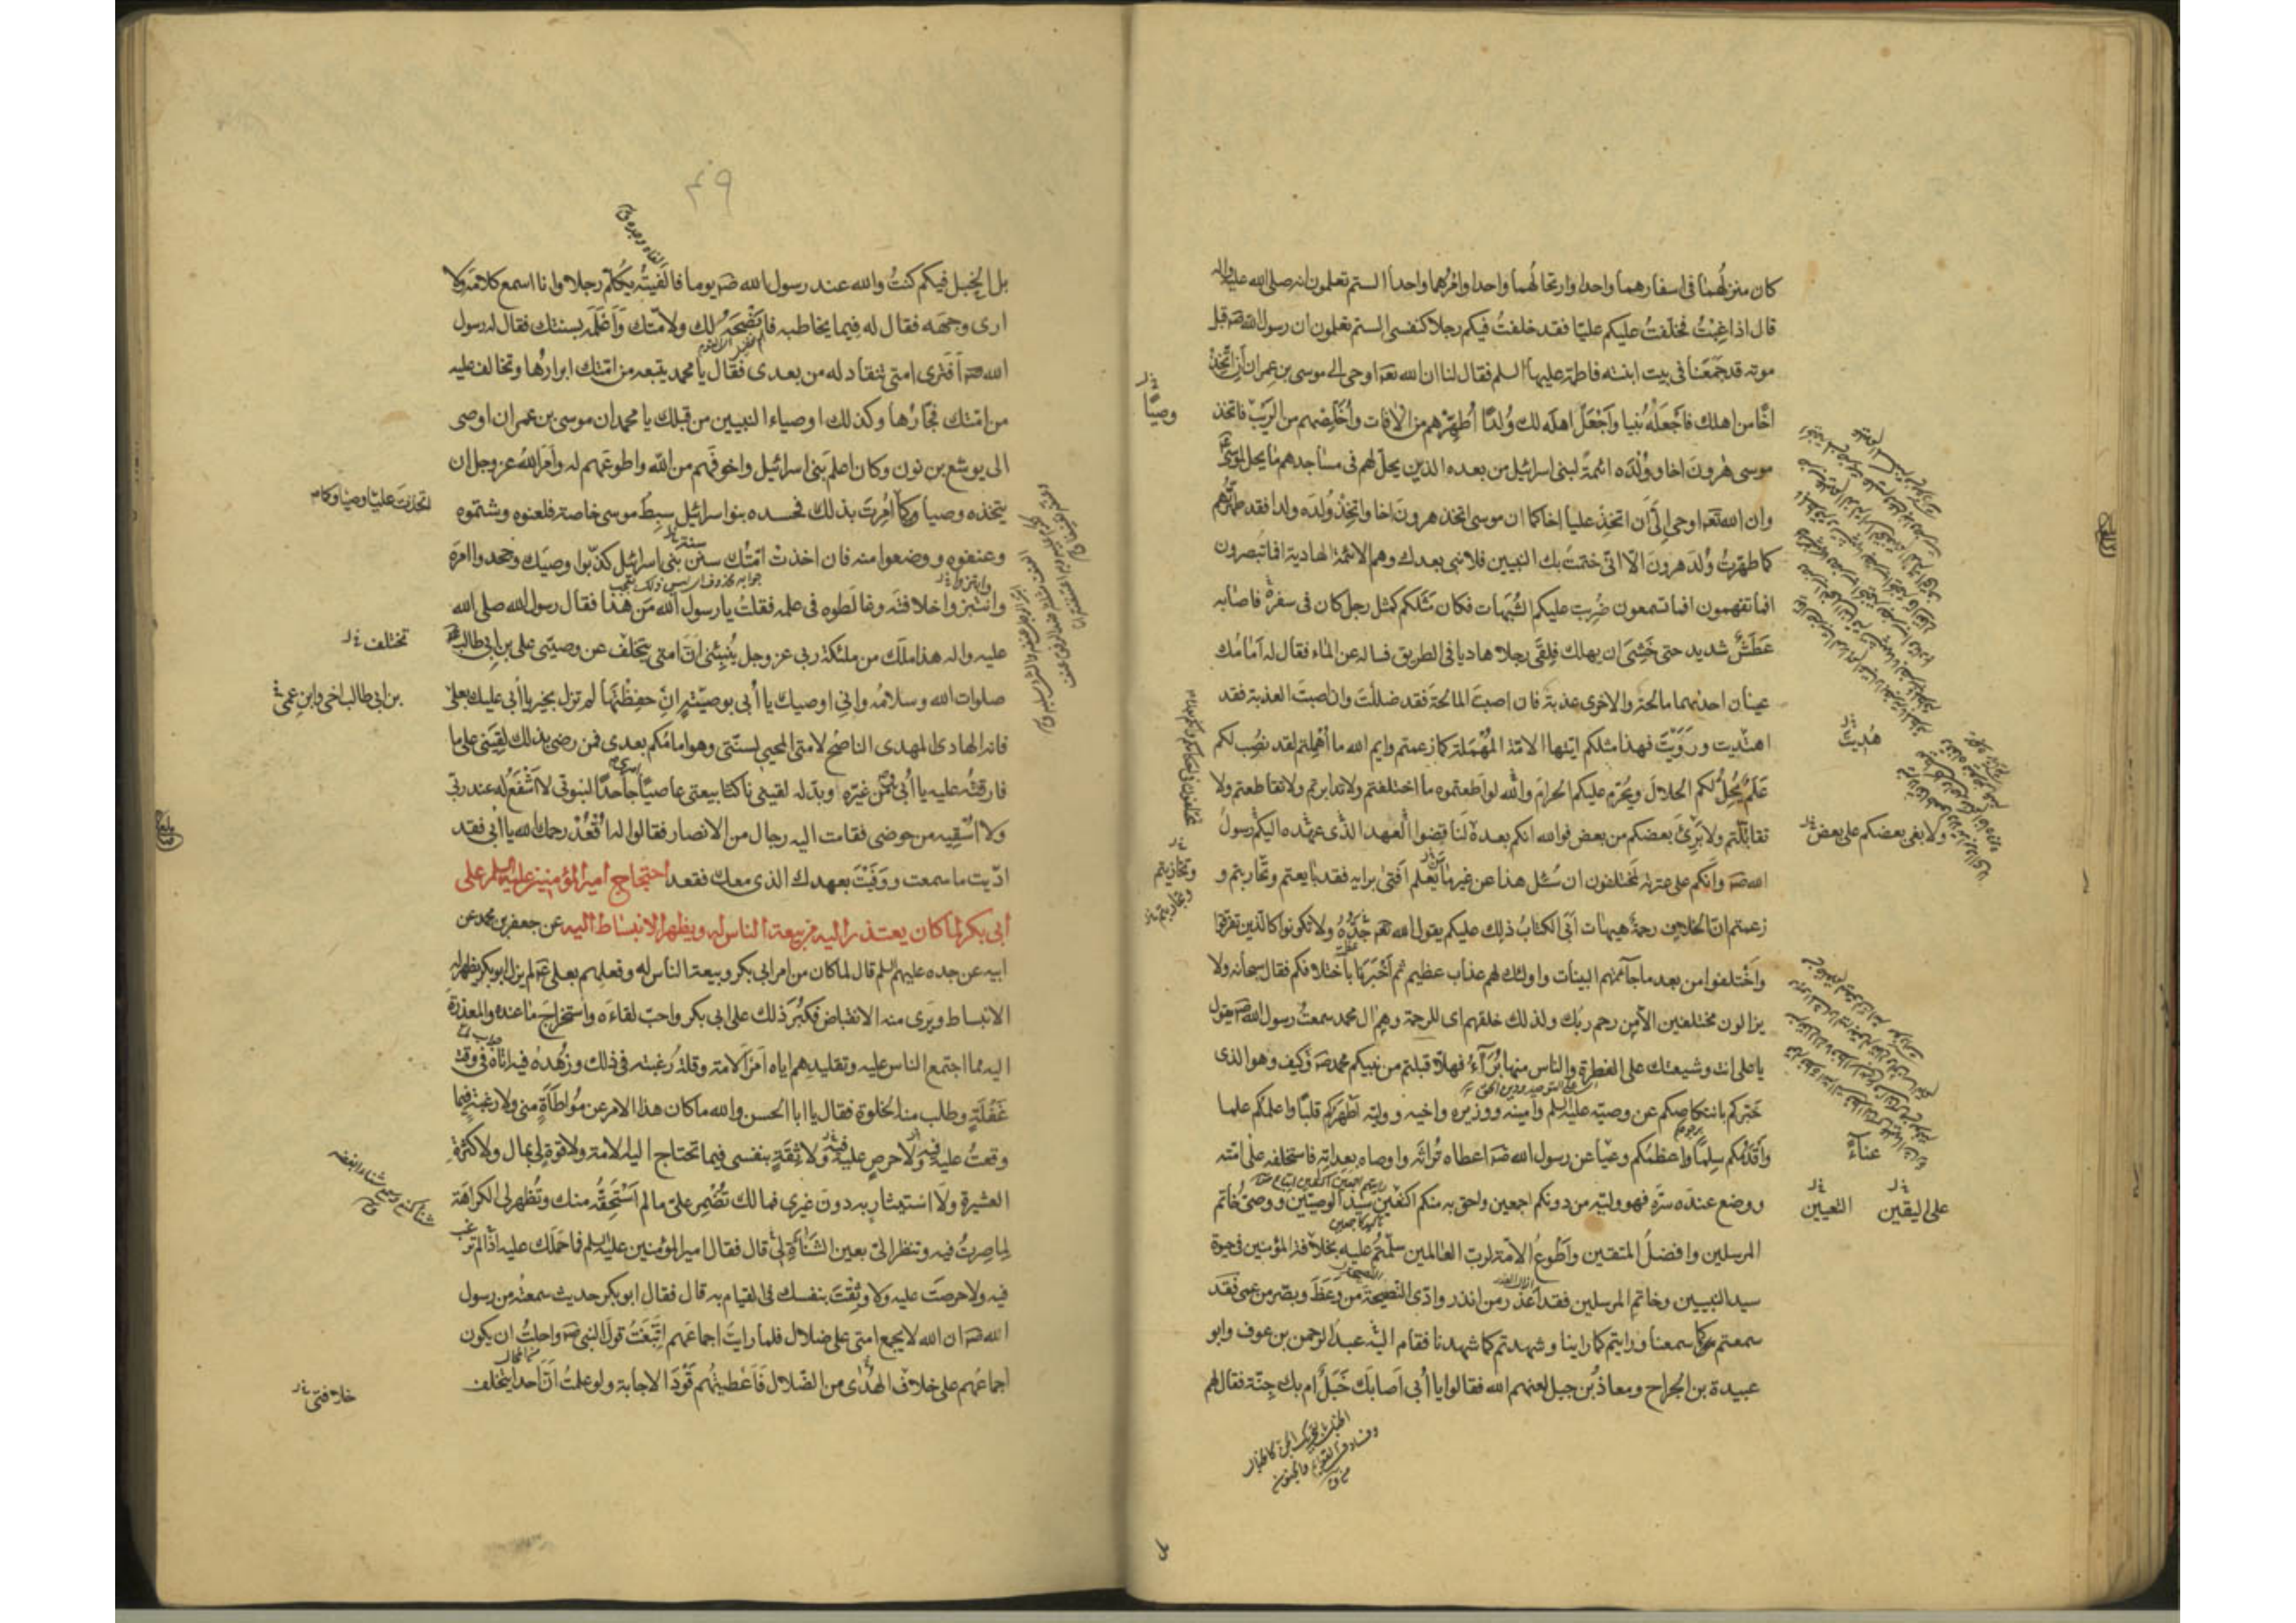 كان منزلهما في اسفارهما واحدا وارتحالهما واحدا وامرهما واحدا الستم تعلمون انه صلى الله عليه واله
قال اذا غِبْتُ فخلّفتُ عليكم عليّا فقد خلفتُ فيكم رجلا كنفسى الستم تعلمون ان رسول الله صه قبل
موته قد جَمَعَنا فى بيت ابنته فاطمة عليها السلم فقال لنا ان الله تعه اوحى الى موسى بن عمران اَنِ اتّخِذْ
اخًا من اهلك فاَجْعَلْهُ نبيا واَجْعَلْ اهله لك وُلدًا اُطهّرْهم من الآفات واُخَلِّصْهم من الرَيْبِ فاتخذ
موسى هٰرونَ اخا ووُلْدَه ائمةً لبنى اسرائيل من بعده الذين يحلّ لهم فى مساجدهم ما يحل لموسى
وان الله تعه اوحى اِلَىّ اَن اتخِذْ علياً اخا كما ان موسى اتخذ هرونَ اخا واتخِذْ وُلدَه ولدا فقد طهّرتُهم
كما طهّرتُ وُلدَ هرونَ الّا انّى ختمتُ بك النبيين فلا نبى بعدك وهم الائمة الهادية افما تبصرون
افما تفهمون افما تسمعون ضُرِبت عليكم الشُبَهات فكان مَثَلكم كمثل رجل كان فى سفره فاصابه
عَطَشٌ شديد حتى خَشِىَ ان يهلك فلِقَى رجلا هاديا فى الطريق فساله عن الماء فقال له اَمامَك
عينان احديهما مالحة والاخرى عذبة فان اصبتَ المالحةَ فقد ضللتَ وان اصبتَ العذبة فقد
اهتديت ورَوَيْتَ فهذا مثلكم ايتها الامّة المهْمَلة كما زعمتم وايم الله ما اُهْمِلتم لقد نُصِب لكم
عَلَمٌ يُحِلُّ لكم الحلالَ ويُحَرّم عليكم الحرامَ والله لو اطعتموه ما اختلفتم ولا تدابرتم ولا تقاطعتم ولا
تقاتلتم ولا بَرِئَ بعضكم من بعض فوالله انكم بعده لَناقضوا العهد الذى عهده اليكم رسول
الله صه وانكم على عترته لَمختلفون ان سُئل هذا عن غير ما يعْلم اَفتىٰ برايه فقد بايعتم وتحاربتم و
زعمتم انّ الخلاف رحمة هيهات اَبَى الكتابُ ذلك عليكم يقول الله تعه جَدُّهُ ولا تكونوا كالذين تفرّقوا
واخْتلفوا من بعد ما جآءتهم البينات واولئك لهم عذاب عظيم ثم اَخْبَرَنا باختلافكم فقال سبحانه ولا
يزالون مختلفين الا من رحم ربّك ولذلك خلقهم اى للرحمة وهم ال محمد سمعتُ رسول الله صه يقول
يا على انت وشيعتك على الفطرة والناس منها بُرَآءُ فهلّا قبلتم من نبيكم محمد صه وكيف وهو الذى
خبّركم بانتكاصكم عن وصيّه عليه السلم وامينه ووزيره واخيه ووليّه اَطْهَرِكم قلبًا واعلمكم علما
واَقْدَمِكم سِلمًا واعظمكم وعيا عن رسول الله صه اعطاه تُراثَه واوصاه بعِداتِه فاستخلفه على امّته
ووضع عنده سرّه فهو وليّه من دونكم اجمعين واحق به منكم اكتعين سيد الوصيّين ووصىّ خاتم
المرسلين وافضلُ المتقين واَطْوعُ الامّة لرب العالمين سلّمتُم عليه بخلافة المؤمنين فى حيوة
سيد النبيين وخاتم المرسلين فقد اَعذر من انذر وادّى النصيحةَ من وَعَظَ وبصّر من عمى فقد
سمعتم كما سمعنا ورايتم كما راينا وشهدتم كما شهدنا فقام اليه عبد الرحمن بن عوف وابو
عبيدة بن الجراح ومعاذ بن جبل لعنهم الله فقالوا يا اُبى اَصابَك خَبَلٌ ام بك جِنّة فقال لهم
وصيًّا
هُديتَ
ولا بغى بعضكم على بعض
وتحازبتم
عناءً
على اليقين
التعيين
بل
۴۹
بل الخبل فيكم كنتُ والله عند رسول الله صه يوما فاَلفيتُه يكلّم رجلا وانا اسمع كلامَه ولا
ارى وجهَه فقال له فيما يخاطبه فا نْصَحَهُ لك ولامّتك واَعْلَمَه بسنتك فقال له رسول
الله صه اَفَترى امتى تنقاد له من بعدى فقال يا محمد يتبعه من امّتك ابرارُها وتخالف عليه
من امّتك فجّارُها وكذلك اوصياء النبيين من قبلك يا محمد ان موسى بن عمران اوصى
الى يوشع بن نون وكان اعلم بَنى اسرائيل واخوفَهم من الله واطوعَهم له واَمَرَ اللهُ عز وجل ان
يتخذه وصيا كما اُمِرتَ بذلك فحسده بنو اسرائيل سِبطُ موسى خاصة فلعنوه وشتموه
وعنفوه ووضعوا منه فان اخذتْ امّتُك سنن بنى اسرائيل كذّبوا وصيّك وجحدوا امرَه
وابتزوا خلافته وغالَطوه فى علمه فقلت يا رسول الله مَن هذا فقال رسول الله صلى الله
عليه واله هذا ملك من ملئكة ربى عز وجل يُنبِئنى انّ امتى يتخلّف عن وصيتى على بن ابى طالب
صلوات الله وسلامُه وانى اوصيك يا اُبى بوصيّتى اِنْ حفِظْتَها لم تزل بخير يا اُبى عليك بعلىّ
فانه الهادى المهدى الناصحُ لامتى المحيى لسنّتى وهو امامكم بعدى فمن رضى بذلك لقِيَنى على ما
فارقتُه عليه يا اُبى فمن غيّره او بدّله لقينى ناكثا بيعتى عاصيًا جاحدًا لنبوتى لا اَشْفَعُ له عند ربّى
ولا اَسْقيه من حوضى فقامت اليه رجال من الانصار فقالوا له اُقْعُدْ رحمك الله يا اُبى فقد
ادّيت ما سمعت ووَفَيْتَ بعهدك الذى معك فقعد احتجاج امير المؤمنين عليه السلم على
ابى بكر لما كان يعتذر اليه من بيعة الناس له ويظهر الانبساط اليه عن جعفر بن محمد عن
ابيه عن جده عليهم السلم قال لما كان من امر ابى بكر وبيعة الناس له وفعلهم بعلى عه لم يزل ابو بكر يظهر له
الانبساط ويَرى منه الانقباض فكبُرَ ذلك على ابى بكر واحبّ لقاءَه واستخراجَ ما عنده والمعذرةَ
اليه مما اجتمع الناس عليه وتقليدهم اياه امْرَ الامّة وقلة رغبته فى ذلك وزُهْدهُ فيه اتاهُ فى وقت
غَفْلَةٍ وطلب منه الخلوة فقال يا ابا الحسن والله ما كان هذا الامر عن مُواطَاَةٍ منى ولا رغبة فيما
وقعتُ عليه فيه ولا حرصٍ عليه ولا ثِقَةٍ بنفسى فيما تحتاج اليه الامّة ولا قوةٍ لى بمال ولا كثرةِ
العشيرة ولا استيثارٍ به دون غيرى فما لك تُضْمِر علىّ ما لم اَسْتَحِقَّه منك وتُظهر لى الكراهَة
لِما صِرتُ فيه وتنظر الىّ بعين الشَنَاَةِ لى قال فقال امير المؤمنين عليه السلم فما حَمَلَك عليه اذا لم ترغب
فيه ولا حرصتَ عليه ولا وثِقْتَ بنفسك فى القيام به قال فقال ابو بكر حديث سمعتُه من رسول
الله صه ان الله لا يجمع امتى على ضلال فلما رايتُ اجماعَهم اِتّبعتُ قولَ النبى صه واحلتُ ان يكون
اجماعُهم على خلاف الهُدٰى من الضّلال فَاَعْطيتُهم قَوْدَ الاجابة ولو علمتُ اَنّ احدا يتخلف
تختلف
بن ابى طالب اخى وابن عمى
خلافتى